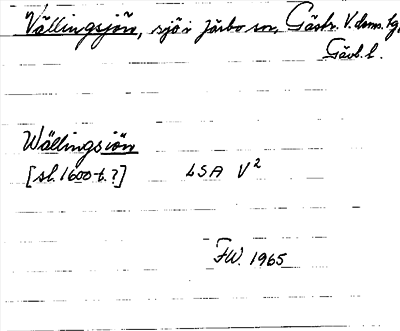 Vällingsjön, sjö i Järbo sn, Gästr. V. doms. tg,
Gävl. l.
Wällingsiön
[sl. 1600-t.?] LSA V²
FW. 1965